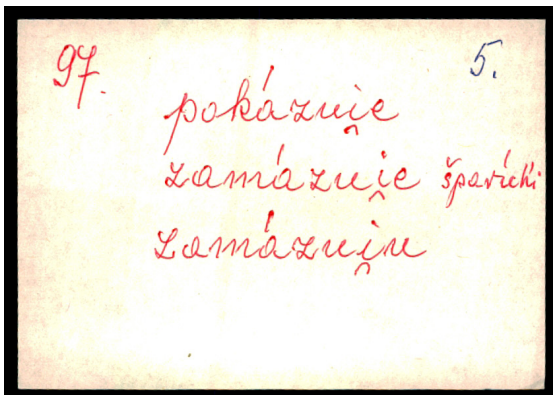 97. 5.
pokázui̯e
zamázui̯e špárićḱi
zamázui̯u